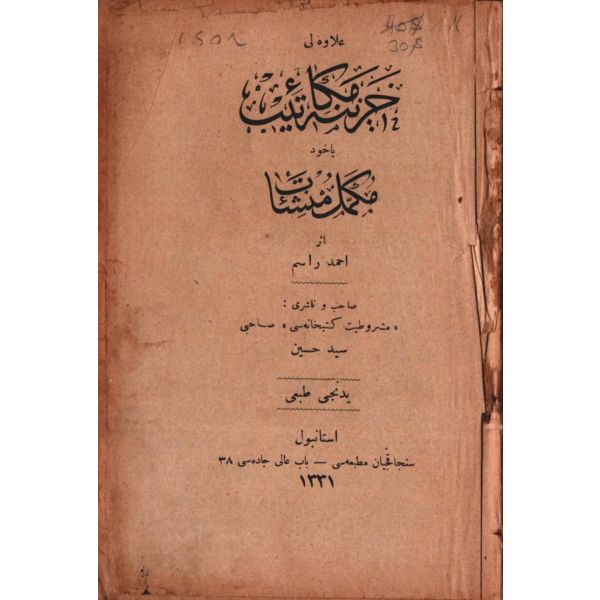 ١٥٠٨
408
308
علاوه لی
خزینه مکاتیب
یاخود
مکمل منشئات
اثر
احمد راسم
صاحب و ناشری :
« مشروطیت کتبخانه‌سی » صاحبی
سید حسین
یدنجی طبعی
استانبول
سنجاقجیان مطبعه‌سی — باب عالی جاده‌سی ٣٨
١٣٣١